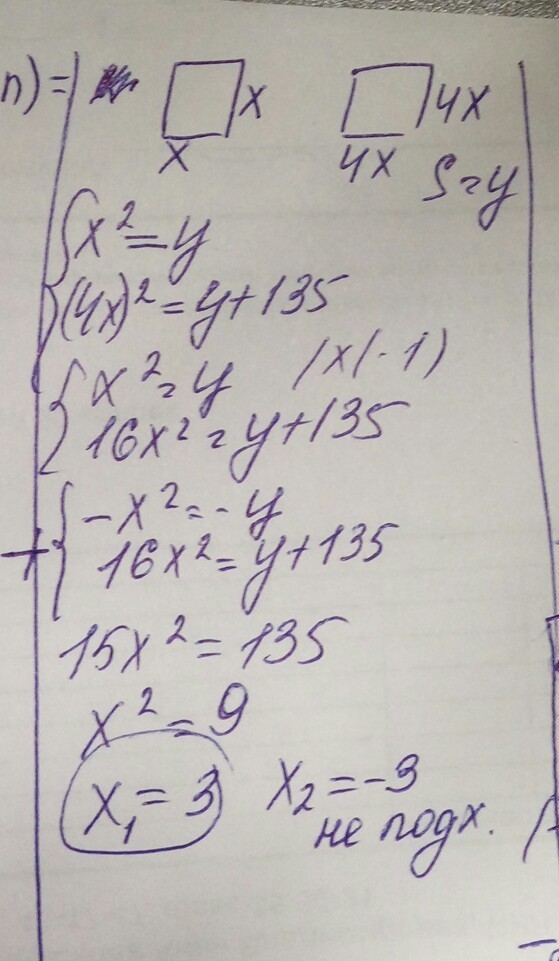 n) =
x
4x
x
4x
S = y
x² = y
(4x)² = y + 135
x² = y /x(-1)
16x² = y + 135
+
-x² = -y
16x² = y + 135
15x² = 135
x² = 9
x₁ = 3 x₂ = -3
не подх.